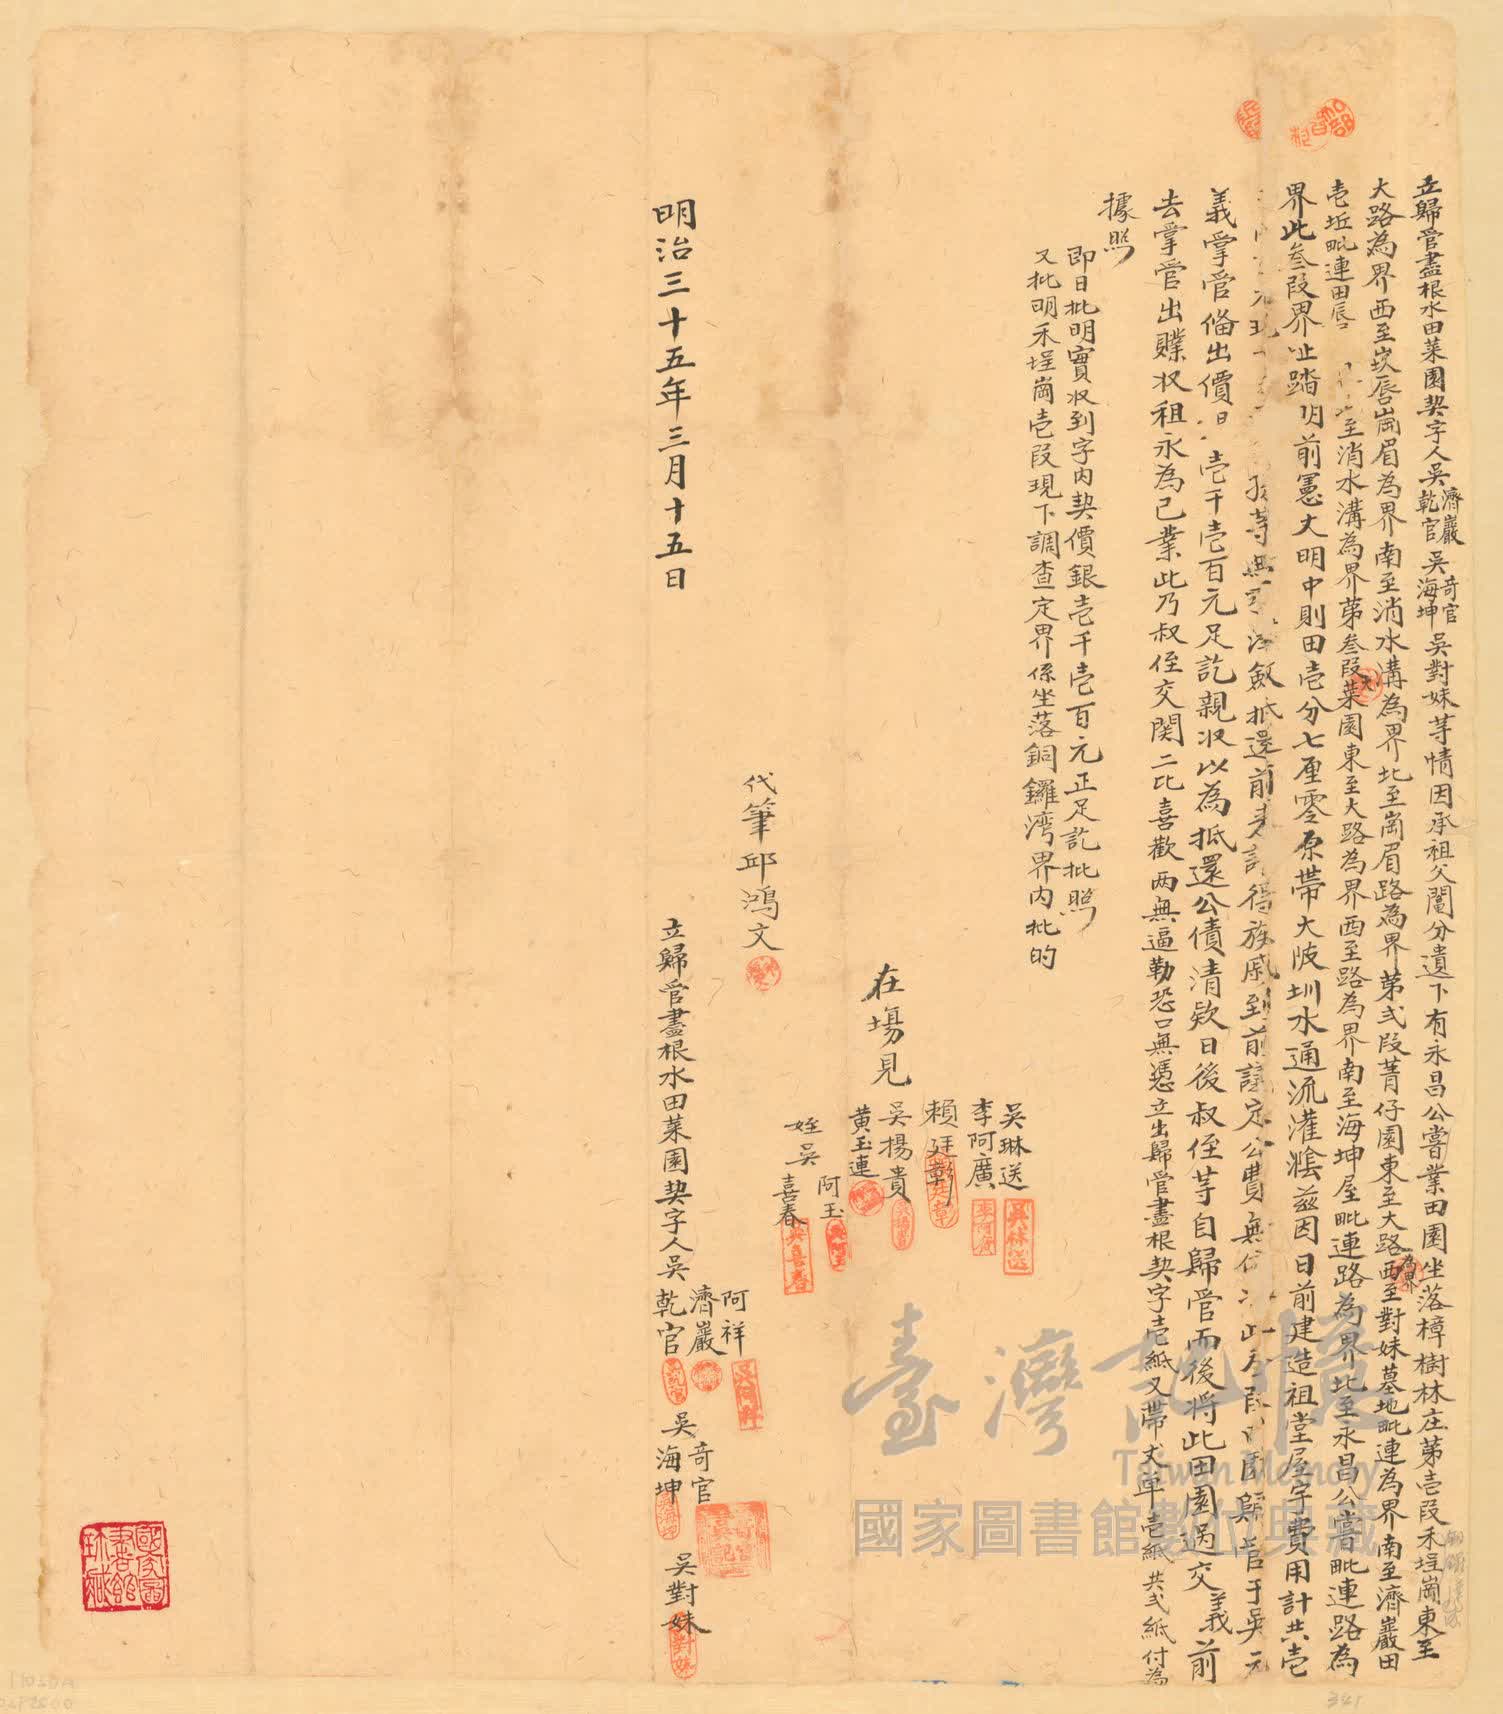 立歸管盡根水田菜園契字人吳濟巖乾官吳奇官海坤吳對妹等情因承祖父鬮分遺下有永昌公嘗業田園坐落樟樹林庄第壹段禾埕崗東至
大路為界西至崁唇崗眉為界南至消水溝為界北至崗眉路為界第弍段菁仔園東至大路為界西至對妹墓地毗連為界南至濟巖田
壹坵毗連田唇至消水溝為界第叁段菜園東至大路為界西至路為界南至海坤屋毗連路為界北至永昌公嘗毗連路為
界此叁段界址踏明前憲丈明中則田壹分七厘零原帶大陂圳水通流灌蔭茲因日前建造祖堂屋宇費用計共壹
等無抵還前族戚到前議定公費無園歸管于吳元
義掌管俻出價壹千壹百元足訖親収以為抵還公債清欵日後叔侄等自歸管而後將此田園過交義前
去掌管出贌収租永為己業此乃叔侄交関二比喜歡两無逼勒恐口無憑立出歸管盡根契字壹紙又帶丈單壹紙共弍紙付為
據照
即日批明實収到字内契價銀壹千壹百元正足訖批照
又批明禾埕崗壹段現下調查定界係坐落銅鑼湾界内批的
在塲見
吳琳送
李阿廣
賴廷彰
吳揚貴
黄玉連
姪吳阿玉
喜春
代筆邱鴻文
明治三十五年三月十五日
立歸管盡根水田菜園契字人吳阿祥濟巖乾官吳奇官海坤吳對妹
吳林送
李阿廣
吳喜春
臺灣記憶
Taiwan Memory
國家圖書館數位典藏
國家圖書館珍藏
341